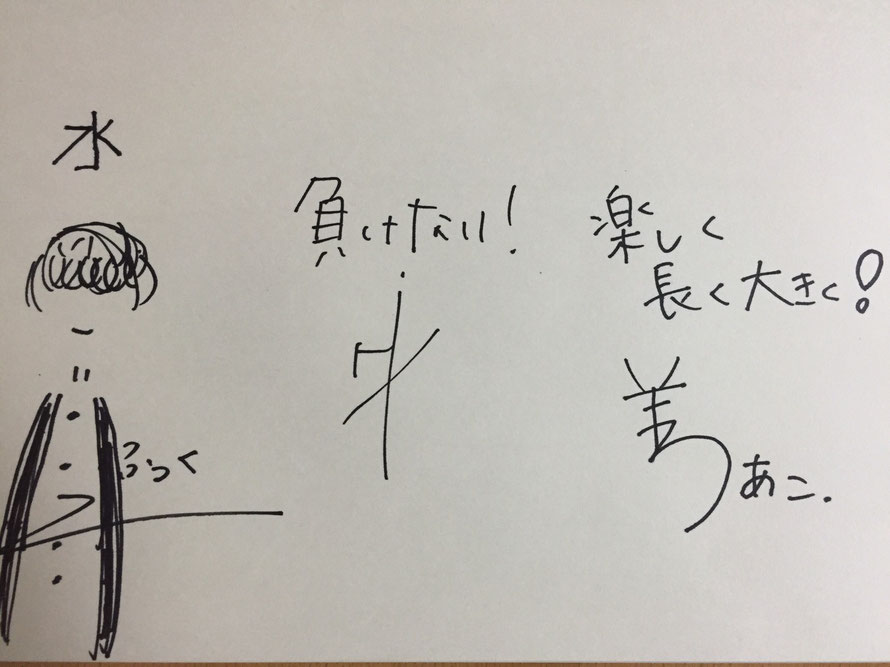 水
ふっく
負けない!
楽しく
長く大きく!
あこ.